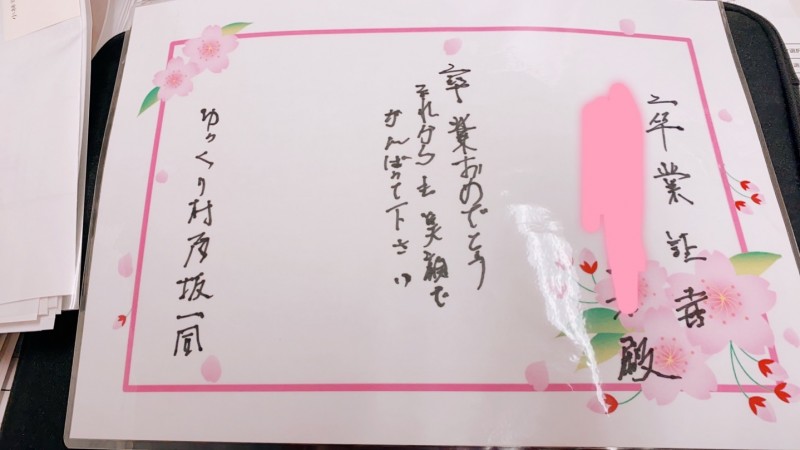 卒業証書
殿
卒業おめでとう
それからも笑顔で
がんばって下さい
ゆっくり村戸坂一同